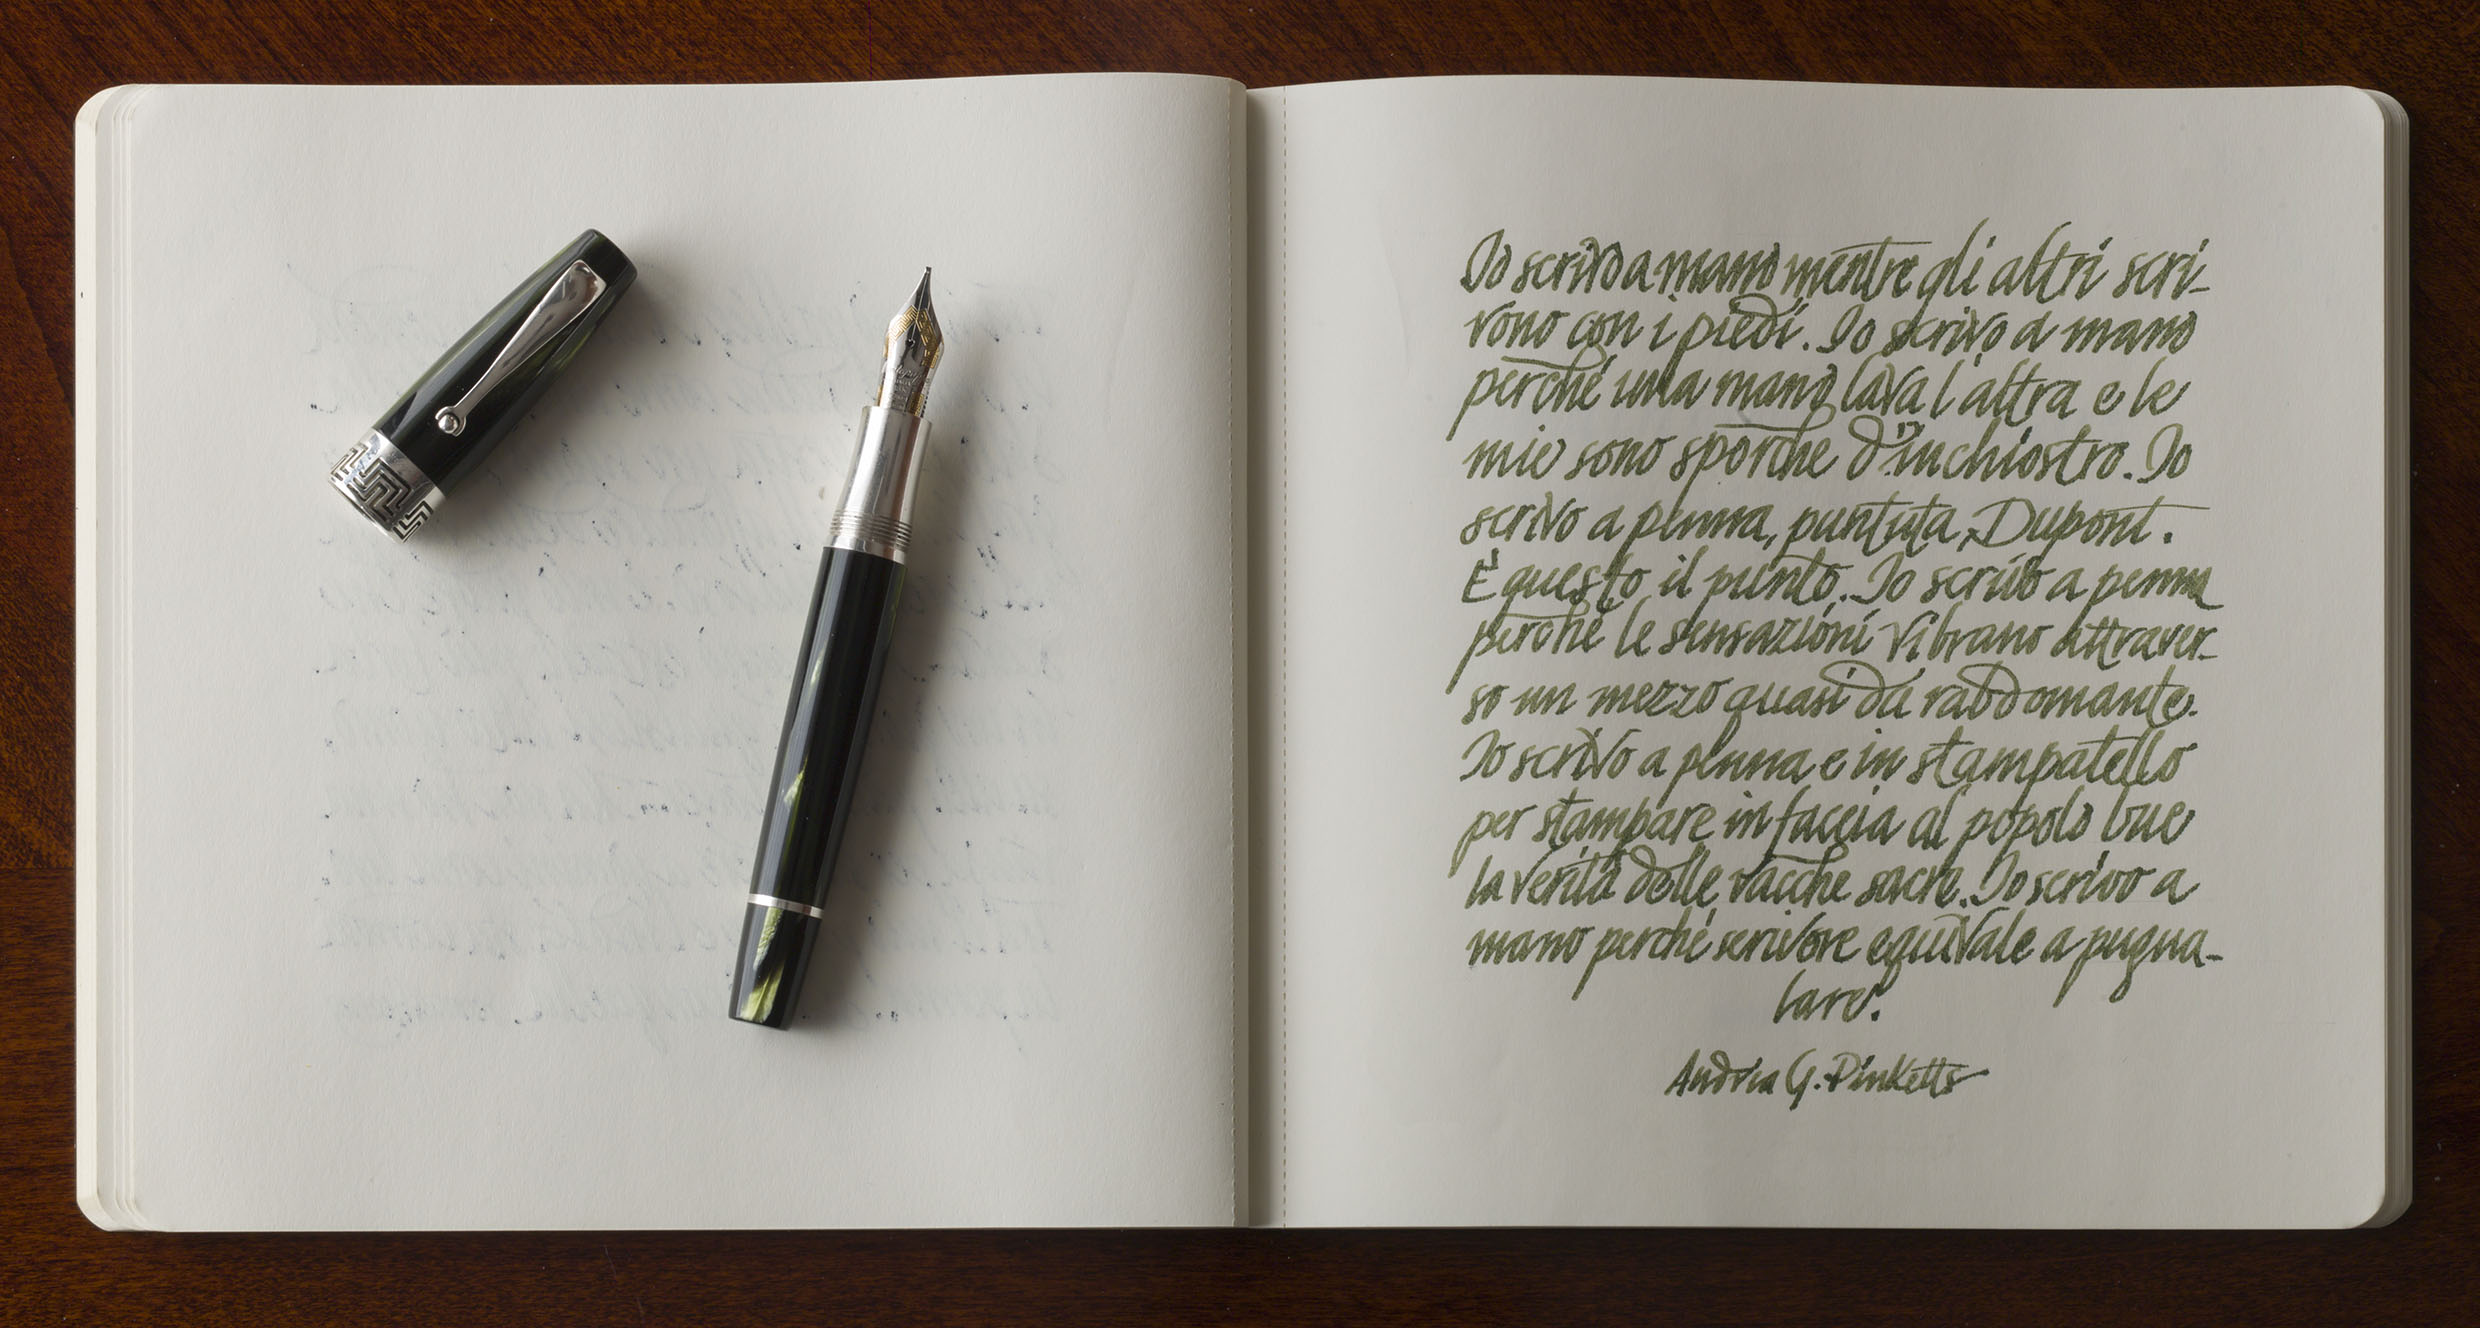 Io scrivo a mano mentre gli altri scri-
vono con i piedi. Io scrivo a mano
perché una mano lava l'altra e le
mie sono sporche d'inchiostro. Io
scrivo a penna, puntuta, Dupont.
È questo il punto. Io scrivo a penna
perché le sensazioni vibrano attraver-
so un mezzo quasi da rabdomante.
Io scrivo a penna e in stampatello
per stampare in faccia al popolo bue
la verità delle vacche sacre. Io scrivo a
mano perché scrivere equivale a pugna-
lare.
Andrea G. Pinketts